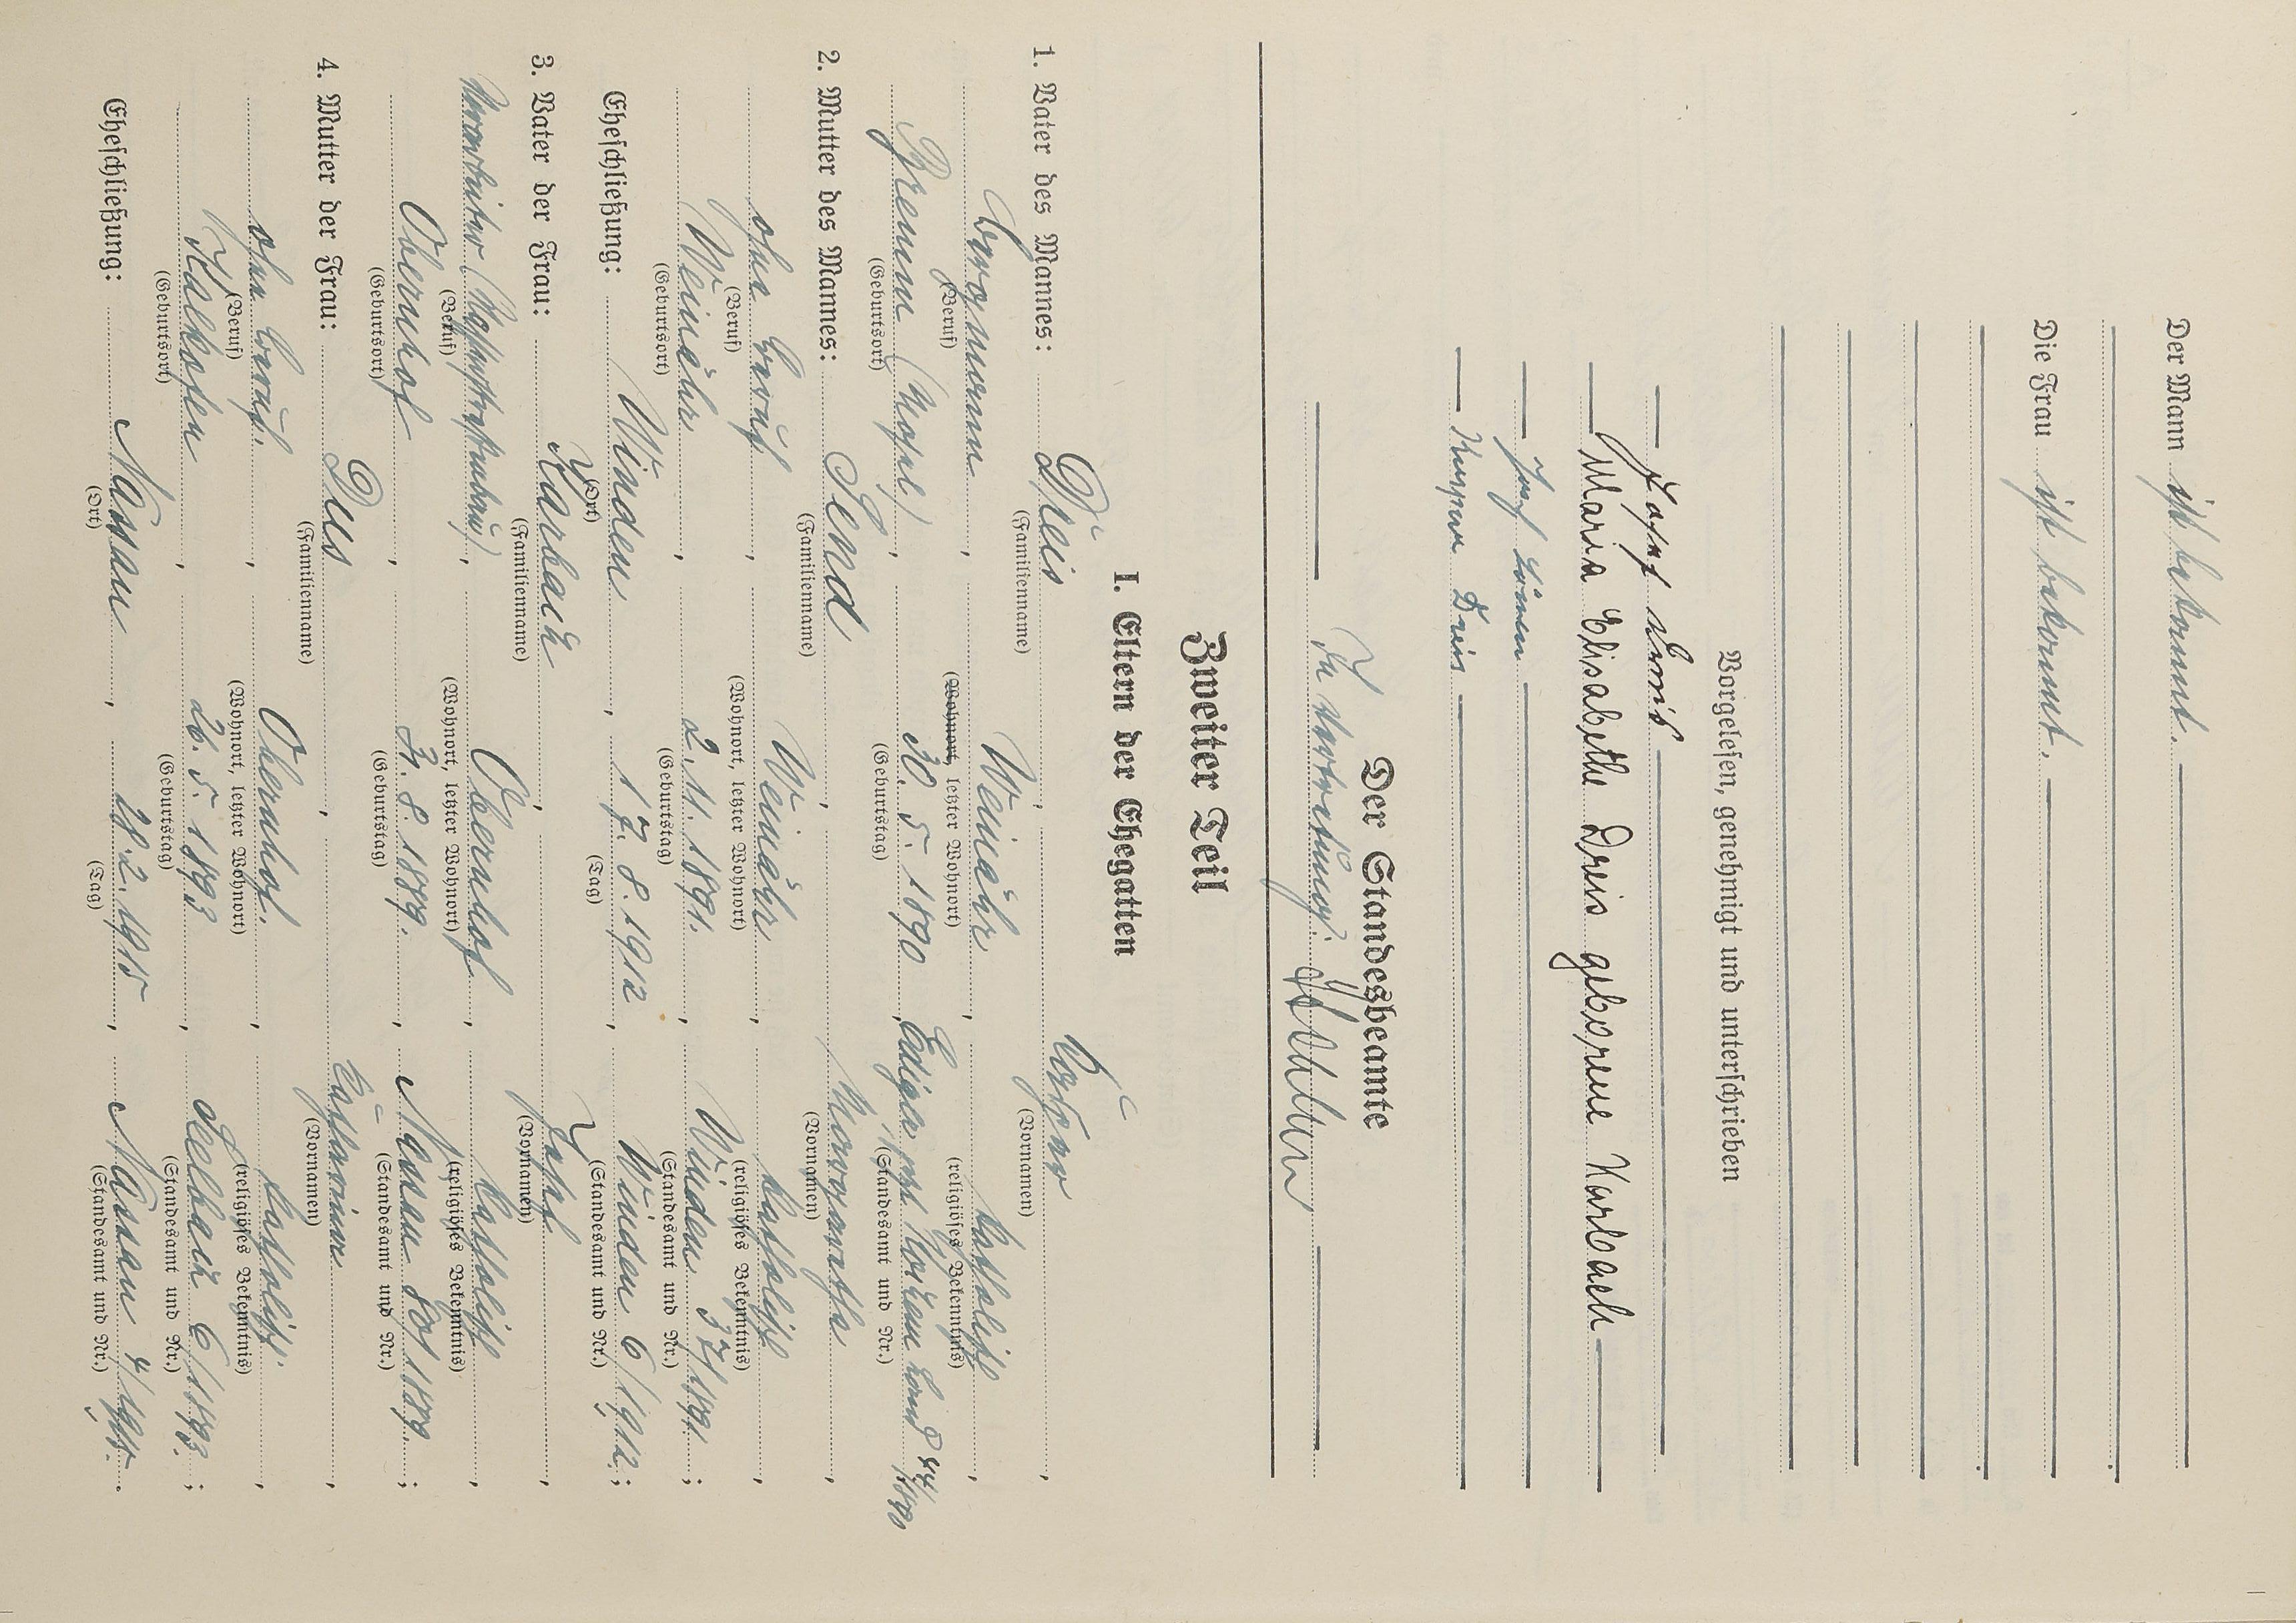 Der Mann ist bekannt.
Die Frau ist bekannt.
Vorgelesen, genehmigt und unterschrieben
Josef Dreis
Maria Elisabethe Dreis geborene Karbach
Josef
Kaspar Dreis
Der Standesbeamte
In Vertretung:
Zweiter Teil
I. Eltern der Ehegatten
1. Vater des Mannes: Dreis,
(Familienname) (Vornamen)
Bergmann, Weinähr, katholisch,
(Beruf) (Wohnort, letzter Wohnort) (religiöses Bekenntnis)
Bremm (Mosel), 30. 5. 1890, Ediger
(Geburtsort) (Geburtstag) (Standesamt und Nr.)
2. Mutter des Mannes: Send, Margaretha,
(Familienname) (Vornamen)
ohne Beruf, Weinähr, katholisch,
(Beruf) (Wohnort, letzter Wohnort) (religiöses Bekenntnis)
Weinähr, 2. 11. 1891, Winden 37/1891;
(Geburtsort) (Geburtstag) (Standesamt und Nr.)
Eheschließung: Winden, 17. 8. 1912, Winden 6/1912;
(Ort) (Tag) (Standesamt und Nr.)
3. Vater der Frau: Karbach, Josef,
(Familienname) (Vornamen)
Vorarbeiter, Obernhof, katholisch,
(Beruf) (Wohnort, letzter Wohnort) (religiöses Bekenntnis)
Obernhof, 3. 8. 1889, Nassau 80/1889;
(Geburtsort) (Geburtstag) (Standesamt und Nr.)
4. Mutter der Frau: Dus, Katharina,
(Familienname) (Vornamen)
ohne Beruf, Obernhof, katholisch,
(Beruf) (Wohnort, letzter Wohnort) (religiöses Bekenntnis)
Kalkofen, 26. 5. 1893, Seelbach 6/1893;
(Geburtsort) (Geburtstag) (Standesamt und Nr.)
Eheschließung: Nassau, 28. 2. 1915, Nassau 4/1915.
(Ort) (Tag) (Standesamt und Nr.)